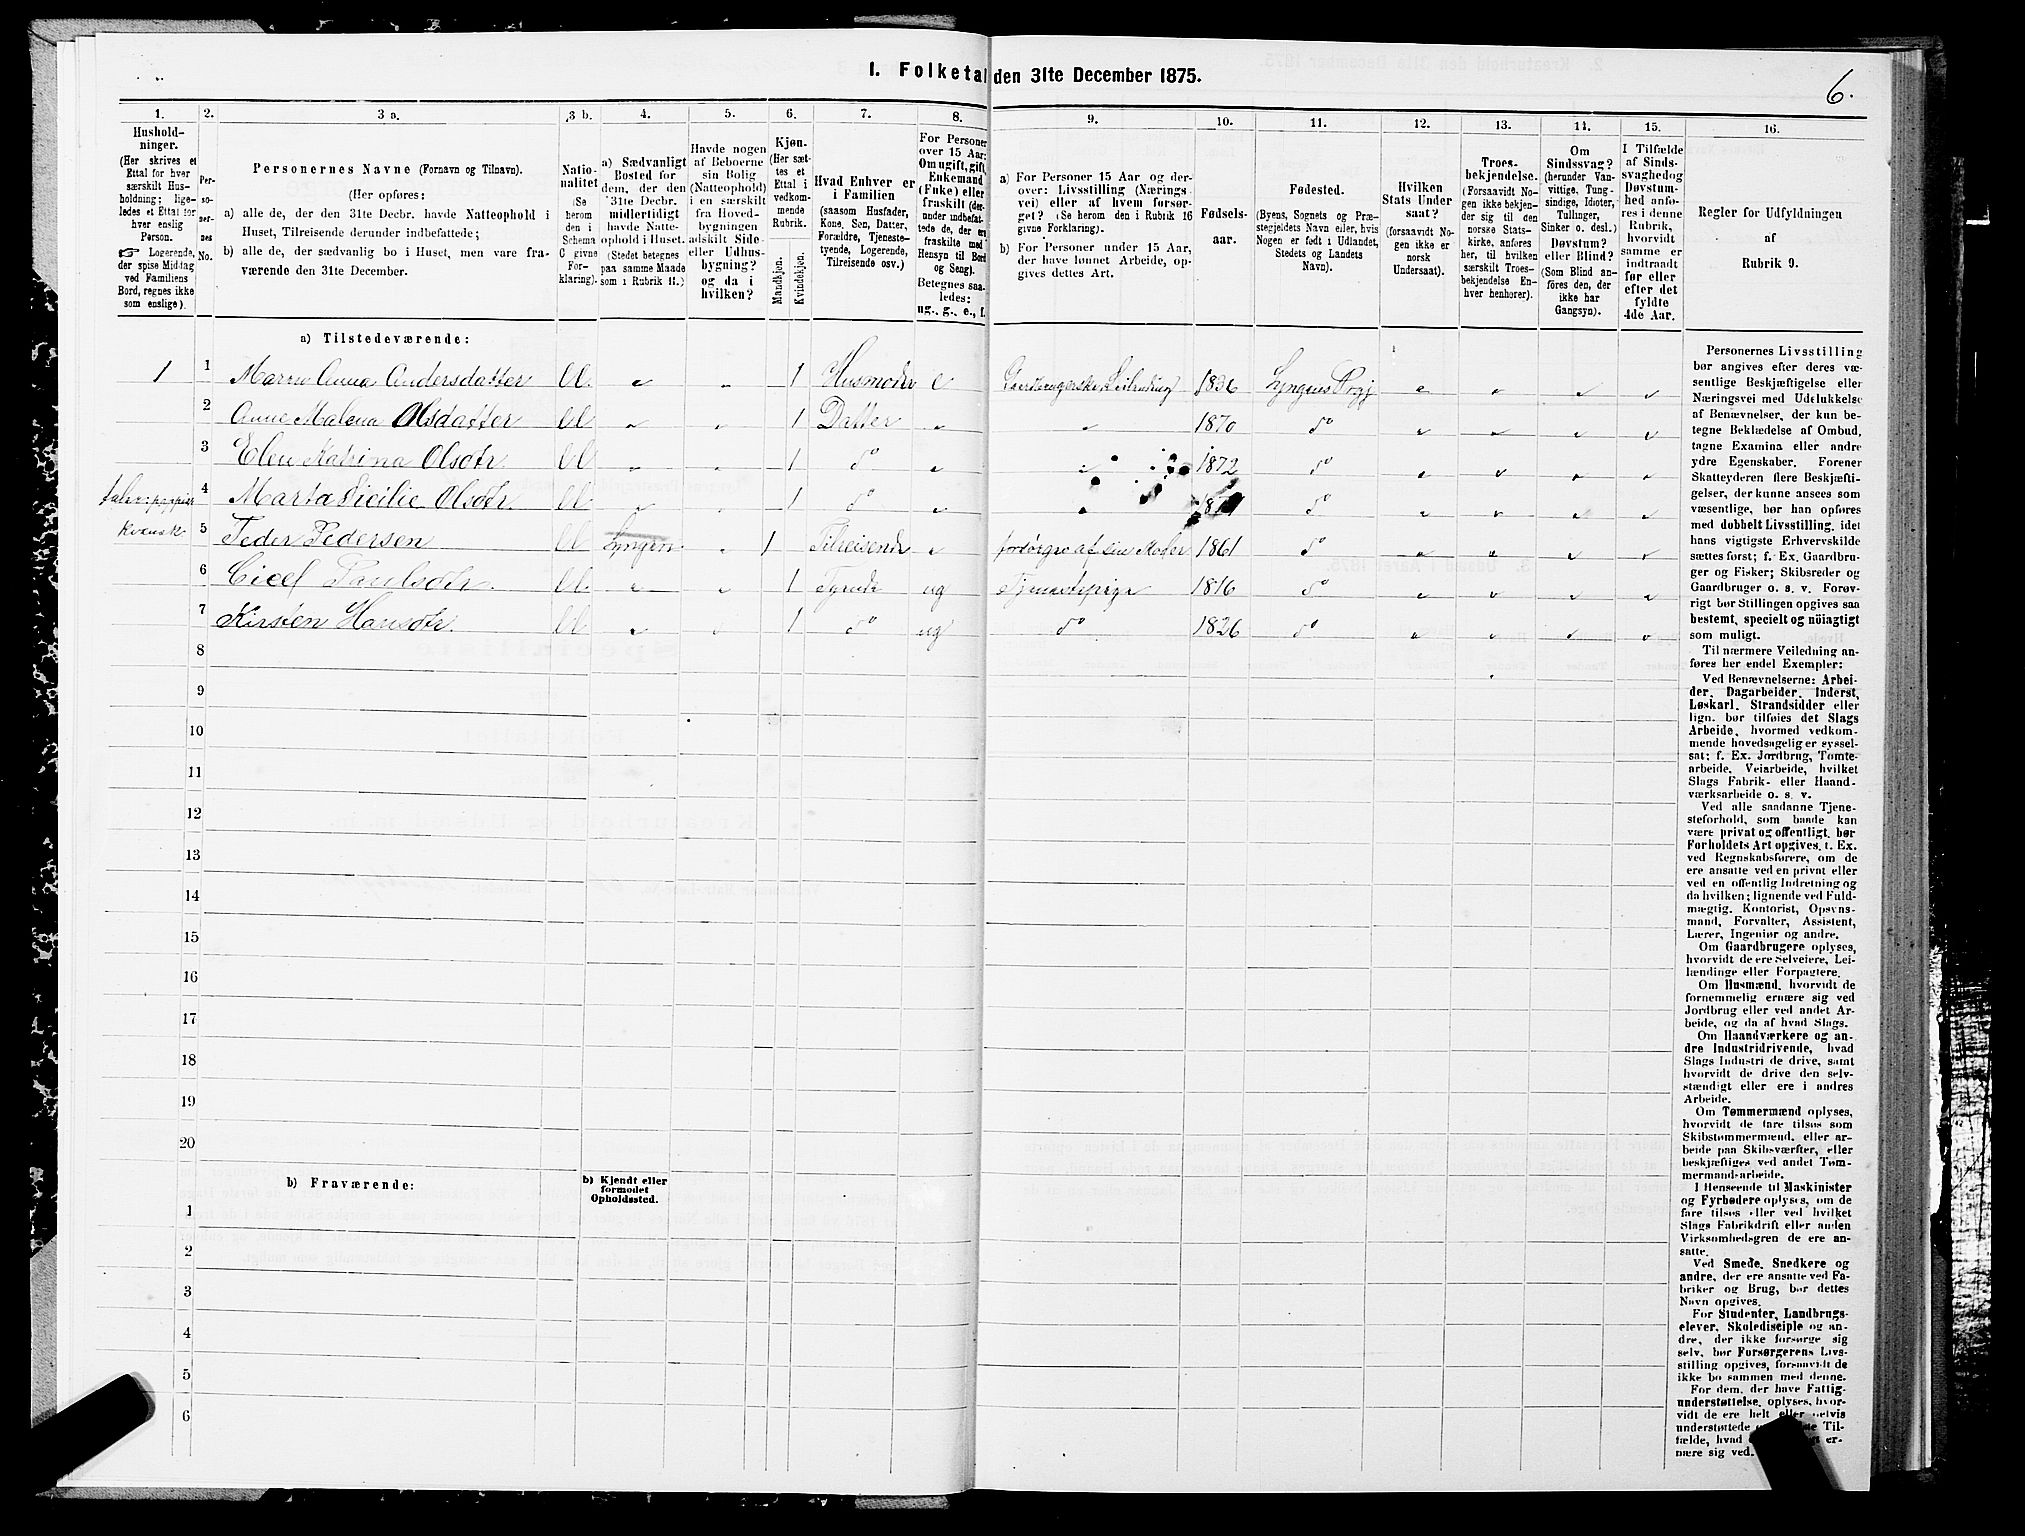 1. Folketal den 31te December 1875.
6.
1.
Hushold-
ninger.
(Her skrives et
Ettal for hver
særskilt Hus-
holdning; lige-
ledes et Ettal for
hver enslig
Person.
☞ Logerende,
der spise Middag
ved Familiens
Bord, regnes ikke
som enslige).
2.
Per-
so-
ner-
nes
No.
3 a.
Personernes Navne (Fornavn og Tilnavn).
(Her opføres:
a) alle de, der den 31te Decbr. havde Natteophold i
Huset, Tilreisende derunder indbefattede;
b) alle de, der sædvanlig bo i Huset, men vare fra-
værende den 31te December.
3 b.
Natio-
nalitet
(Se
herom
den i
Schema
C givne
For-
klaring).
4.
a) Sædvanligt
Bosted for
dem, der den
31te Decbr.
midlertidigt
havde Natte-
ophold i Huset.
(Stedet betegnes
paa samme Maade
som i Rubrik 11.)
5.
Havde nogen
af Beboerne
sin Bolig
(Natteophold)
i en særskilt
fra Hoved-
bygningen
adskilt Side-
eller Udhus-
bygning?
og da i
hvilken?
6.
Kjøn.
(Her sæt-
tes et
Ettal i
vedkom-
mende
Rubrik.
Mandkjøn.
Kvindekjøn.
7.
Hvad Enhver er
i Familien
(saasom Husfader,
Kone, Søn, Datter,
Forældre, Tjeneste-
tyende, Logerende,
Tilreisende osv.)
8.
For Personer
over 15 Aar:
Om ugift, gift,
Enkemand
(Enke) eller
fraskilt (der-
under indbefat-
tede de, der ere
fraskilte med
Hensyn til Bord
og Seng).
Betegnes saa-
ledes:
ug., g., e., f.
9.
a) For Personer 15 Aar og der-
over: Livsstilling (Nærings-
vei) eller af hvem forsør-
get? (Se herom den i Rubrik 16
givne Forklaring).
b) For Personer under 15 Aar,
der have lønnet Arbeide, op-
gives dettes Art.
10.
Fødsels-
aar.
11.
Fødested.
(Byens, Sognets og Præ-
stegjeldets Navn eller, hvis
Nogen er født i Udlandet,
Stedets og Landets
Navn).
12.
Hvilken
Stats Under
saat?
(forsaavidt No-
gen ikke er
norsk
Undersaat).
13.
Troes-
bekjendelse.
(Forsaavidt No-
gen ikke bekjen-
der sig til den
norske Stats-
kirke, anføres
her, til hvilken
særskilt Troes-
bekjendelse En-
hver henhører).
14.
Om
Sindssvag?
(herunder Van-
vittige, Tung-
sindige, Idioter,
Tullinger,
Sinker o. desl.)
Døvstum?
eller Blind?
(Som Blind an-
føres den, der
ikke har
Gangsyn).
15.
I Tilfælde
af Sinds-
svaghed og
Døvstum-
hed anfø-
res i denne
Rubrik,
hvorvidt
samme er
indtraadt
før eller
efter det
fyldte
4de Aar.
16.
Regler for Udfyldningen
af
Rubrik 9.
a) Tilstedeværende:
1 1 Maren Anna Andersdatter 1 Husmoder e Gaardbrugerske Leilending 1836 Lyngens Prgj
2 Anne Malena Olsdatter 1 Datter 1870 do
3 Elen Katrina Olsdtr 1 do 1872 do
4 Marta Sicilie Olsdtr. 1 do do
kvensk 5 Peder Pedersen Lyngen 1 Tilreisende forsørges af sin Moder 1861 do
6 Cicel Paulsdtr. 1 Tyende ug Tjenestepige 1816 do
7 Kirsten Hansdtr. 1 do ug do 1826 do
8
9
10
11
12
13
14
15
16
17
18
19
20
b) Fraværende:
b) Kjendt eller
formodet
Opholdssted.
1
2
3
4
5
6
Personernes Livsstilling
bør angives efter deres væ-
sentlige Beskjæftigelse eller
Næringsvei med Udelukkelse
af Benævnelser, der kun be-
tegne Beklædelse af Ombud,
tagne Examina eller andre
ydre Egenskaber. Forener
Skatteyderen flere Beskjæfti-
gelser, der kunne ansees som
væsentlige, bør han opføres
med dobbelt Livsstilling, idet
hans vigtigste Erhvervskilde
sættes først; f. Ex. Gaardbru-
ger og Fisker; Skibsreder og
Gaardbruger o. s. v. Forøv-
rigt bør Stillingen opgives saa
bestemt, specielt og nöiagtigt
som muligt.
Til nærmere Veiledning an-
føres her endel Exempler:
Ved Benævnelserne: Arbei-
der, Dagarbeider, Inderst,
Løskarl, Strandsidder eller
lign. bør tilføies det Slags
Arbeide, hvormed vedkom-
mende hovedsagelig er syssel-
sat; f. Ex. Jordbrug, Tømte-
arbeide, Veiarbeide, hvilket
Slags Fabrik- eller Haand-
værksarbeide o. s. v.
Ved alle saadanne Tjene-
steforhold, som baade kan
være privat og offentligt, bør
Forholdets Art opgives, f. Ex.
ved Regnskabsførere, om de
ere ansatte ved en privat eller
ved en offentlig Indretning og
da hvilken; lignende ved Fuld-
mægtig, Kontorist, Opsyns-
mand, Forvalter, Assistent,
Lærer, Ingeniør og andre.
Om Gaardbrugere oplyses,
hvorvidt de ere Selveiere, Lei-
lændinge eller Forpagtere.
Om Husmænd, hvorvidt de
fornemmelig ernære sig ved
Jordbrug eller ved andet Ar-
beide, og da af hvad Slags.
Om Haandværkere og an-
dre Industridrivende, hvad
Slags Industri de drive, samt
hvorvidt de drive den selv-
stændigt eller ere i andres
Arbeide.
Om Tømmermænd oplyses,
hvorvidt de fare tilsøs som
Skibstømmermænd, eller ar-
beide paa Skibsværfter, eller
beskjæftiges ved andet Tøm-
mermandsarbeide.
I Henseende til Maskinister
og Fyrbødere oplyses, om de
fare tilsøs eller ved hvilket
Slags Fabrikdrift eller anden
Virksomhedsgren de ere an-
satte.
Ved Smede, Snedkere og
andre, der ere ansatte ved Fa-
briker og Brug, bør dettes
Navn opgives.
For Studenter, Landbrugs-
elever, Skoledisciple og an-
dre, der ikke forsørge sig
selv, bør Forsørgerens Livs-
stilling opgives, forsaavidt de
ikke bo sammen med denne.
For dem, der have Fattig-
understøttelse, oplyses, hvor-
vidt de ere helt eller delvis
understøttede Til-
fælde, hvad er-
nære sig ved.